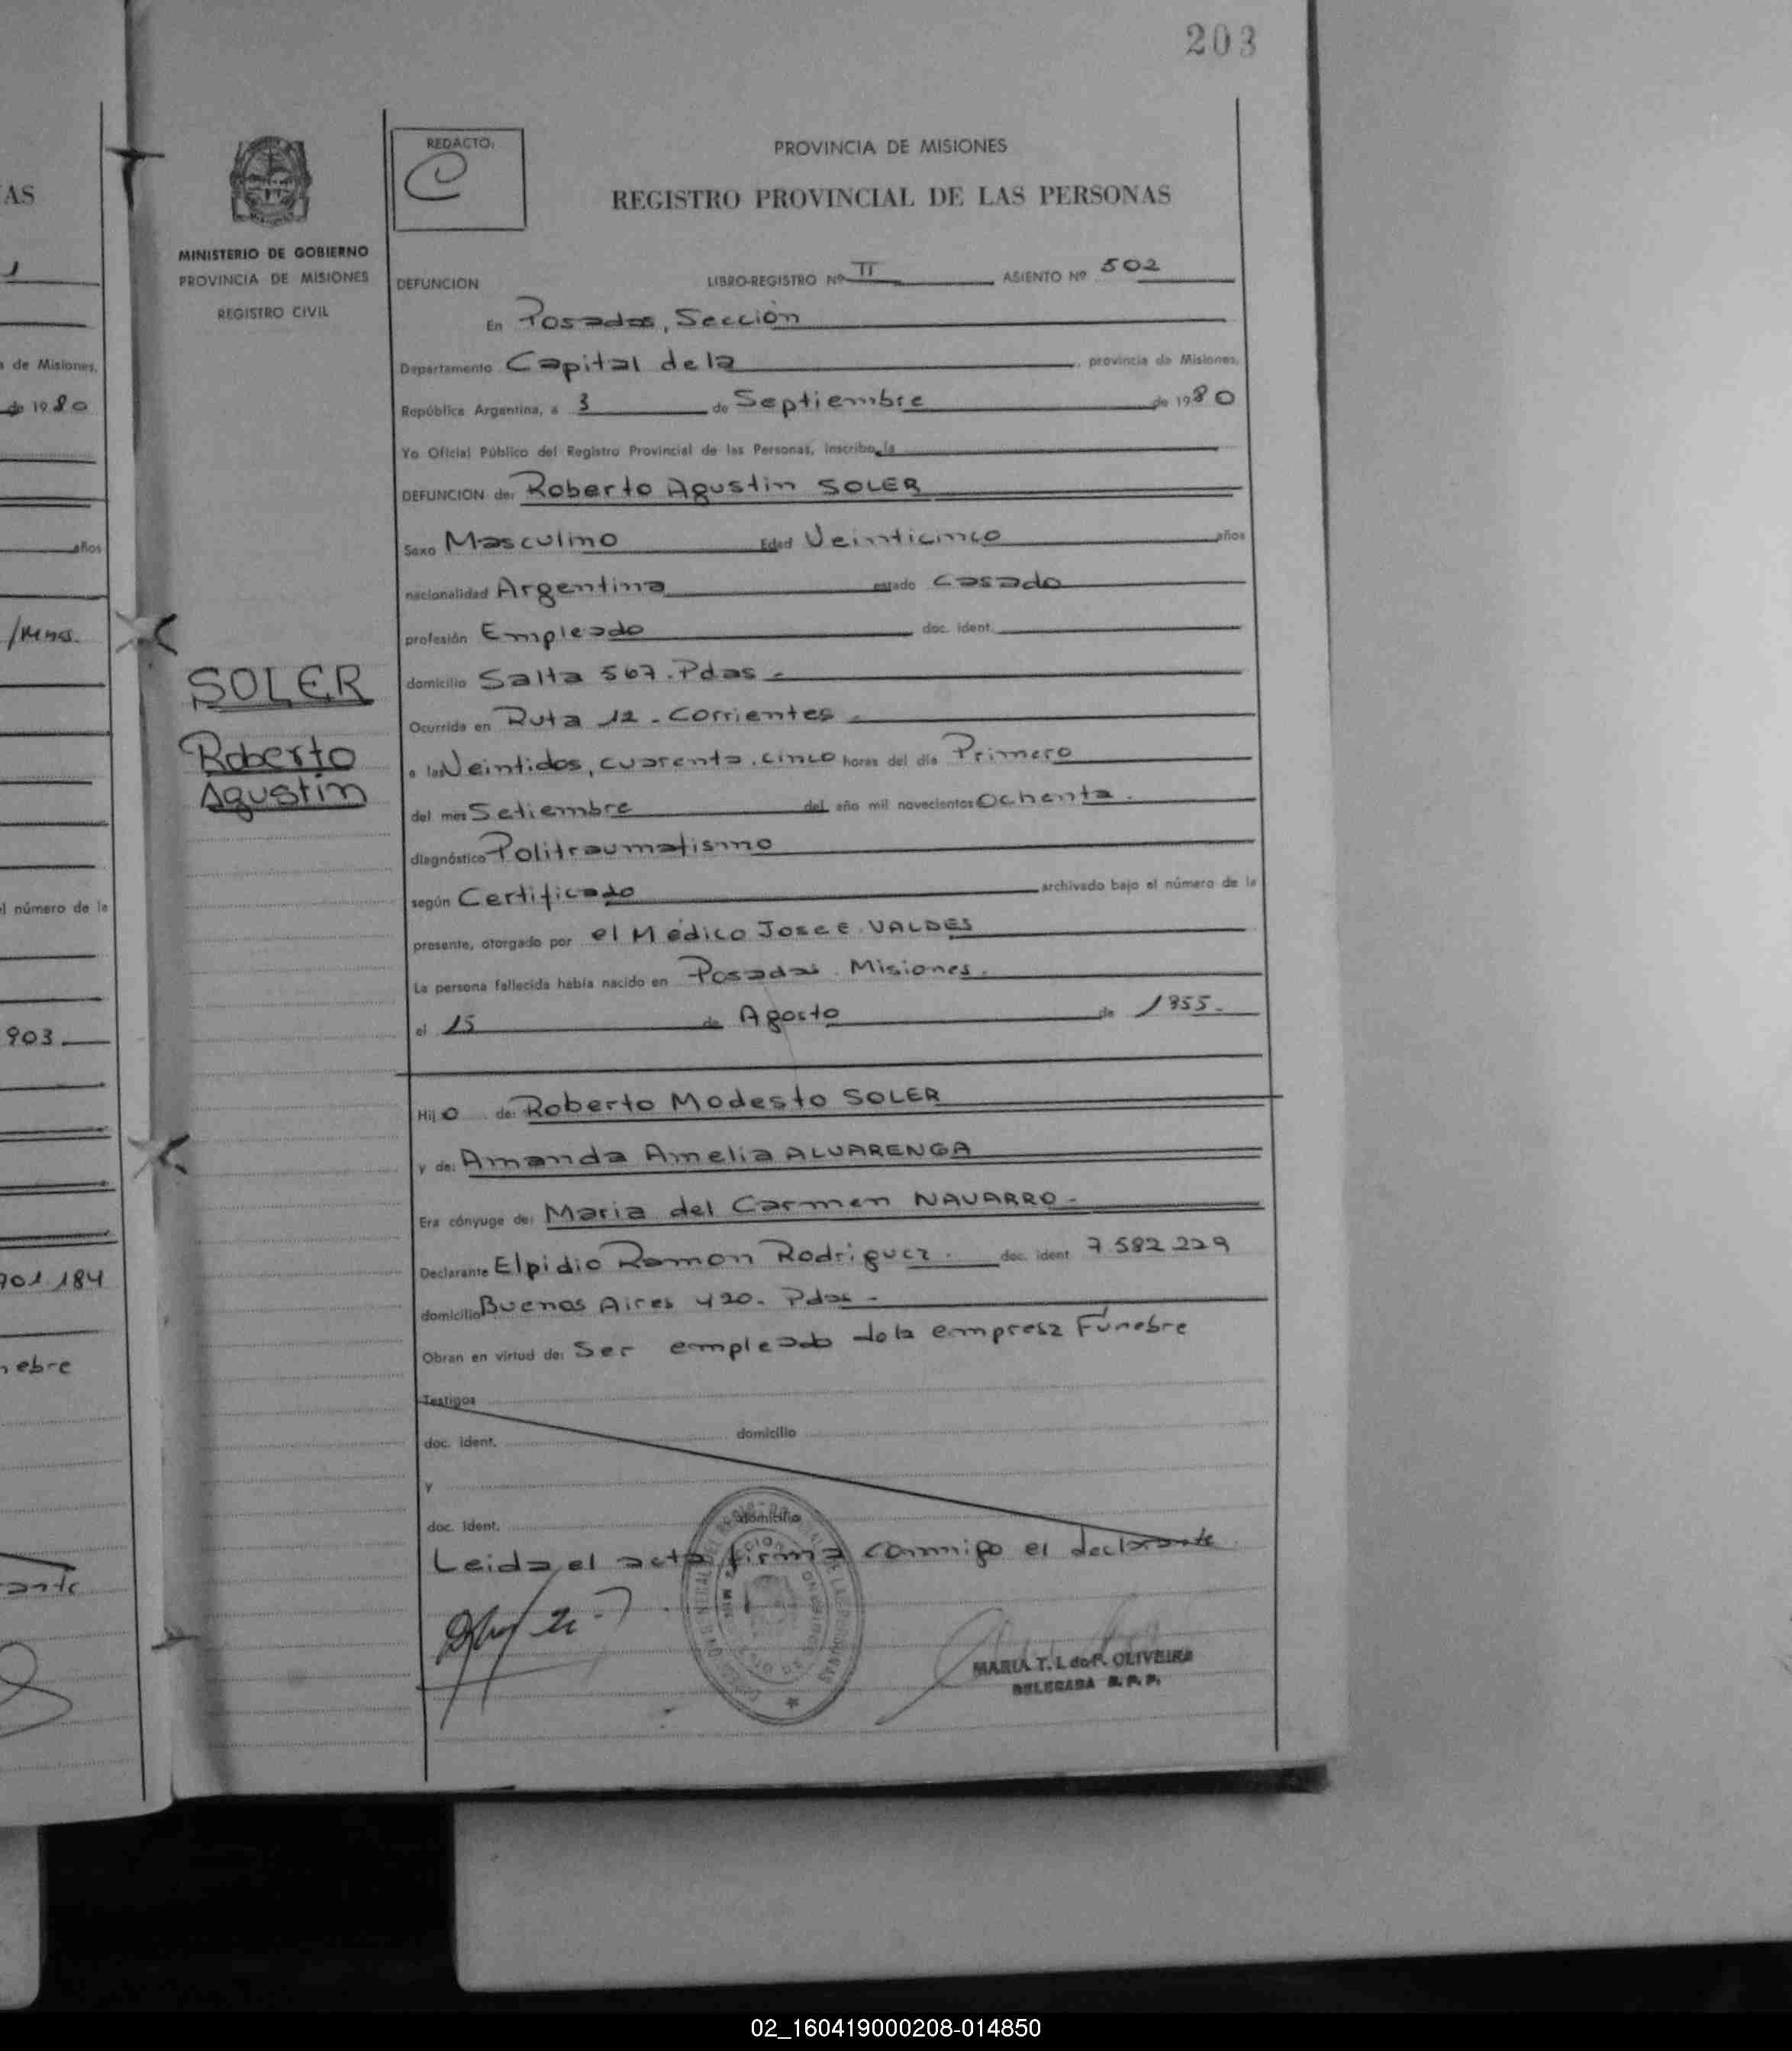 203
AS
1
a de Misiones,
de 1980
años
/Mnes.
el número de la
903
901 184
nebre
ante
MINISTERIO DE GOBIERNO
PROVINCIA DE MISIONES
REGISTRO CIVIL
SOLER
Roberto
Agustin
REDACTO:
C
PROVINCIA DE MISIONES
REGISTRO PROVINCIAL DE LAS PERSONAS
DEFUNCION LIBRO-REGISTRO Nº II ASIENTO Nº 502
En Posadas, Sección
Departamento Capital de la, provincia de Misiones,
República Argentina, a 3 de Septiembre de 1980
Yo Oficial Público del Registro Provincial de las Personas, inscribo la
DEFUNCION de: Roberto Agustin SOLER
Sexo Masculino Edad Veinticinco años
nacionalidad Argentina estado casado
profesión Empleado doc. ident.
domicilio Salta 567. Pdas -
Ocurrida en Ruta 12 - Corrientes -
a las Veintidos, cuarenta, cinco horas del día Primero
del mes Setiembre del año mil novecientos Ochenta.
diagnóstico Politraumatismo
según Certificado archivado bajo el número de la
presente, otorgado por el Médico Jose E. VALDES
La persona fallecida había nacido en Posadas Misiones.
el 15 de Agosto de 1955.
Hijo de: Roberto Modesto SOLER
y de: Amanda Amelia ALVARENGA
Era cónyuge de: Maria del Carmen NAVARRO -
Declarante Elpidio Ramon Rodriguez. doc. ident. 7.582.229
domicilio Buenos Aires 420. Pdas -
Obran en virtud de: Ser empleado de la empresa Fúnebre
Testigos
doc. ident. domicilio
y
doc. ident. domicilio
Leida el acta firma conmigo el declarante
MARIA T. L. de F. OLIVEIRA
DELEGADA R. P. P.
02_160419000208-014850